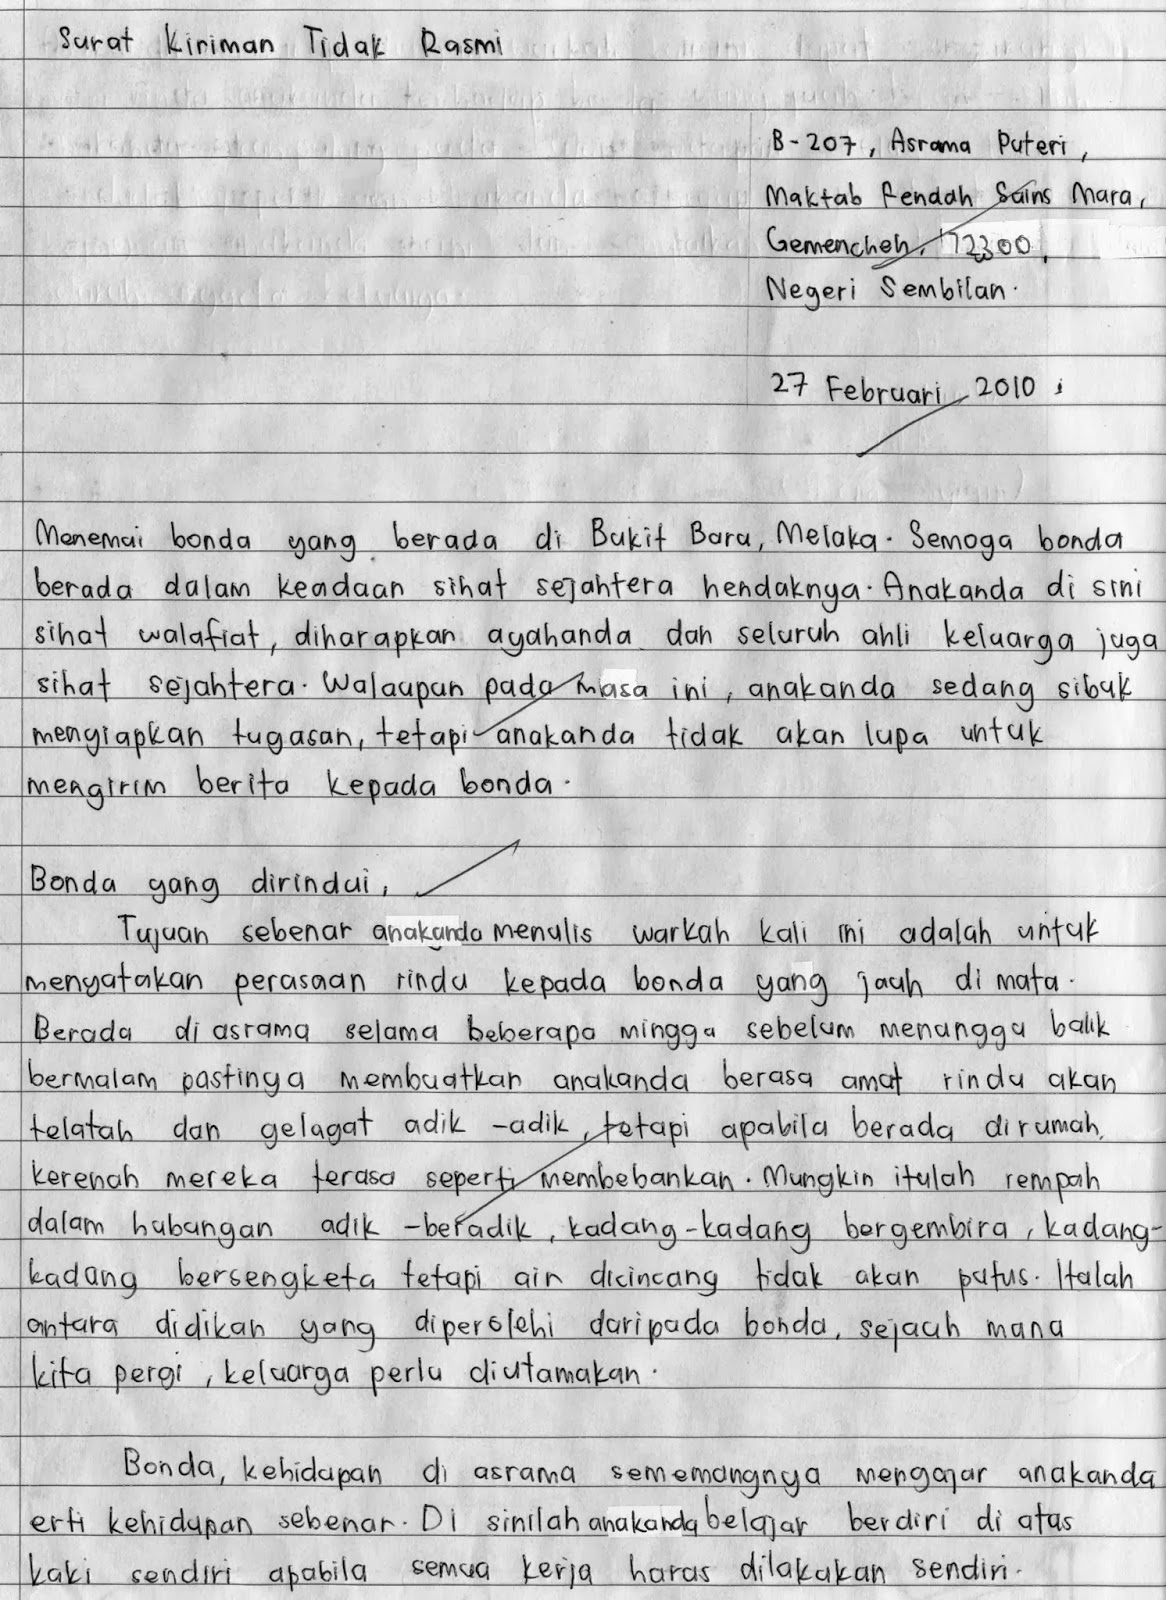 Surat Kiriman Tidak Rasmi
B-207, Asrama Puteri,
Maktab Rendah Sains Mara,
Gemencheh, 72300,
Negeri Sembilan.
27 Februari 2010
Menemui bonda yang berada di Bukit Baru, Melaka. Semoga bonda
berada dalam keadaan sihat sejahtera hendaknya. Anakanda di sini
sihat walafiat, diharapkan ayahanda dan seluruh ahli keluarga juga
sihat sejahtera. Walaupun pada masa ini, anakanda sedang sibuk
menyiapkan tugasan, tetapi anakanda tidak akan lupa untuk
mengirim berita kepada bonda.
Bonda yang dirindui,
Tujuan sebenar anakanda menulis warkah kali ini adalah untuk
menyatakan perasaan rindu kepada bonda yang jauh di mata.
Berada di asrama selama beberapa minggu sebelum menunggu balik
bermalam pastinya membuatkan anakanda berasa amat rindu akan
telatah dan gelagat adik -adik, tetapi apabila berada dirumah,
kerenah mereka terasa seperti membebankan. Mungkin itulah rempah
dalam hubungan adik -beradik, kadang-kadang bergembira, kadang-
kadang bersengketa tetapi air dicincang tidak akan putus. Itulah
antara didikan yang diperolehi daripada bonda, sejauh mana
kita pergi, keluarga perlu diutamakan.
Bonda, kehidupan di asrama sememangnya mengajar anakanda
erti kehidupan sebenar. Di sinilah anakanda belajar berdiri di atas
kaki sendiri apabila semua kerja harus dilakukan sendiri.